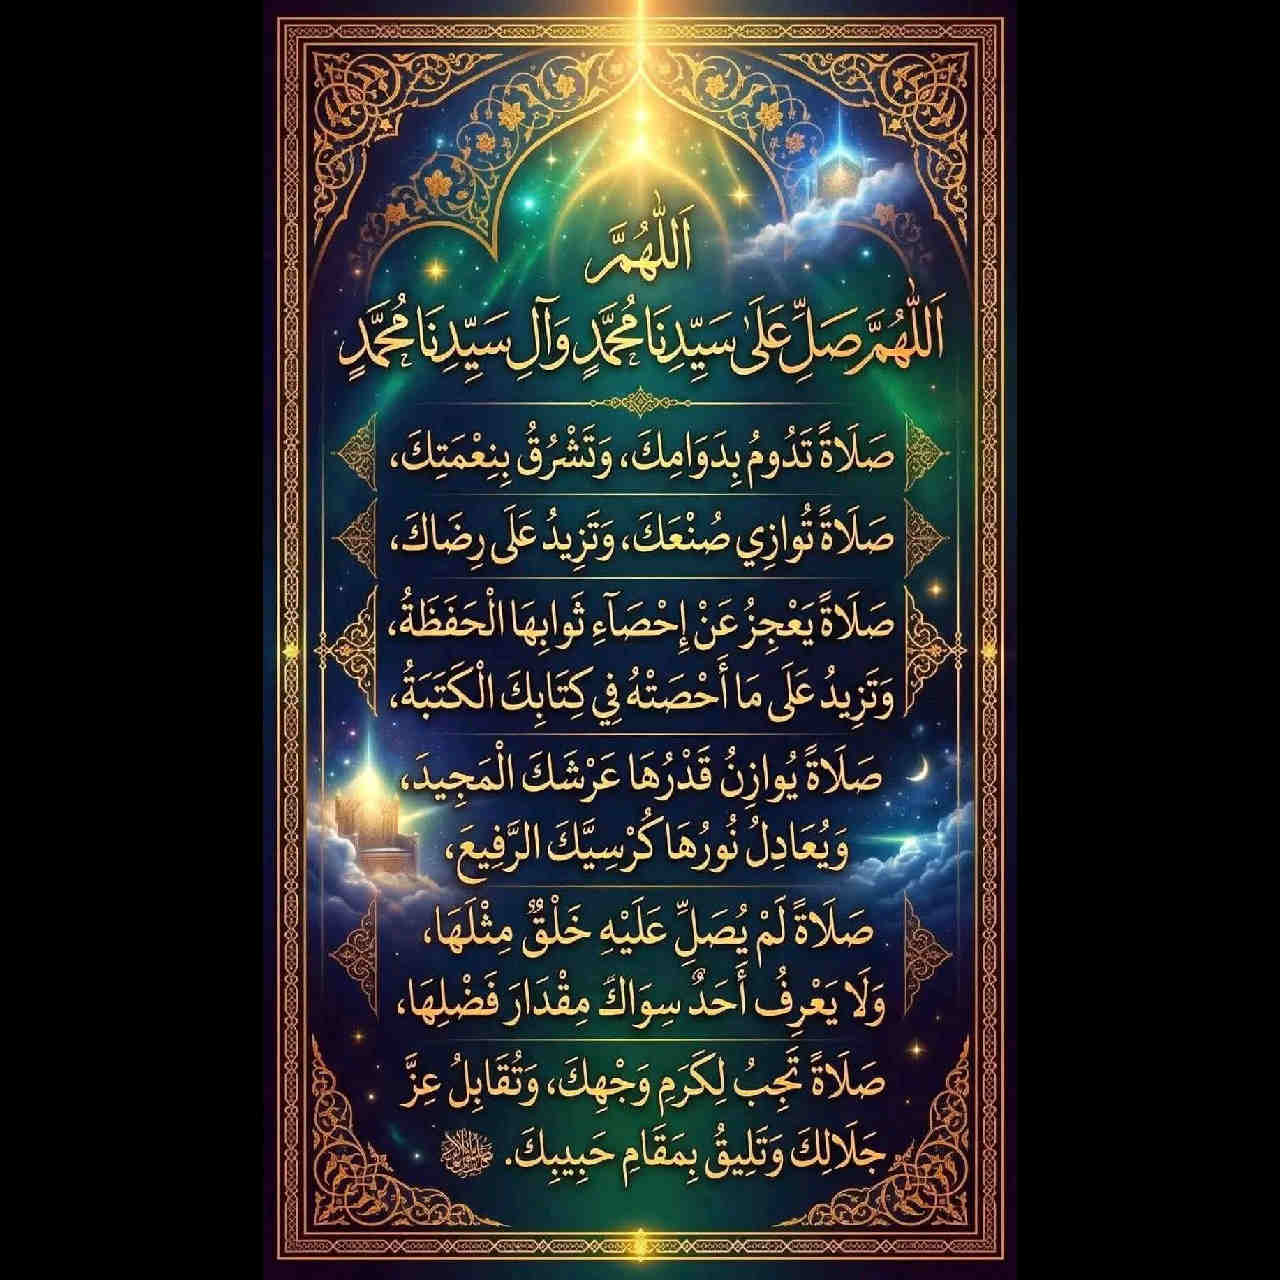 اَللّٰهُمَّ
اَللّٰهُمَّ صَلِّ عَلَىٰ سَيِّدِنَا مُحَمَّدٍ وَآلِ سَيِّدِنَا مُحَمَّدٍ
صَلَاةً تَدُومُ بِدَوَامِكَ، وَتَشْرُقُ بِنِعْمَتِكَ،
صَلَاةً تُوازِي صُنْعَكَ، وَتَزِيدُ عَلَى رِضَاكَ،
صَلَاةً يَعْجِزُ عَنْ إِحْصَآءِ ثَوابِهَا الْحَفَظَةُ،
وَتَزِيدُ عَلَى مَا أَحْصَتْهُ فِي كِتَابِكَ الْكَتَبَةُ،
صَلَاةً يُوازِنُ قَدْرُهَا عَرْشَكَ الْمَجِيدَ،
وَيُعَادِلُ نُورُهَا كُرْسِيَّكَ الرَّفِيعَ،
صَلَاةً لَمْ يُصَلِّ عَلَيْهِ خَلْقٌ مِثْلَهَا،
وَلَا يَعْرِفُ أَحَدٌ سِوَاكَ مِقْدَارَ فَضْلِهَا،
صَلَاةً تَجِبُ لِكَرَمِ وَجْهِكَ، وَتُقَابِلُ عِزَّ
جَلَالِكَ وَتَلِيقُ بِمَقَامِ حَبِيبِكَ.